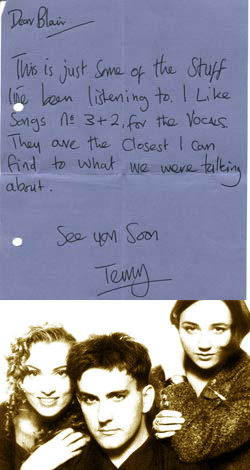 Dear Blair
This is just some of the stuff
I've been listening to. I Like
Songs No 3+2, for the Vocals.
They are the Closest I can
find to what we were talking
about.
See you Soon
Terry